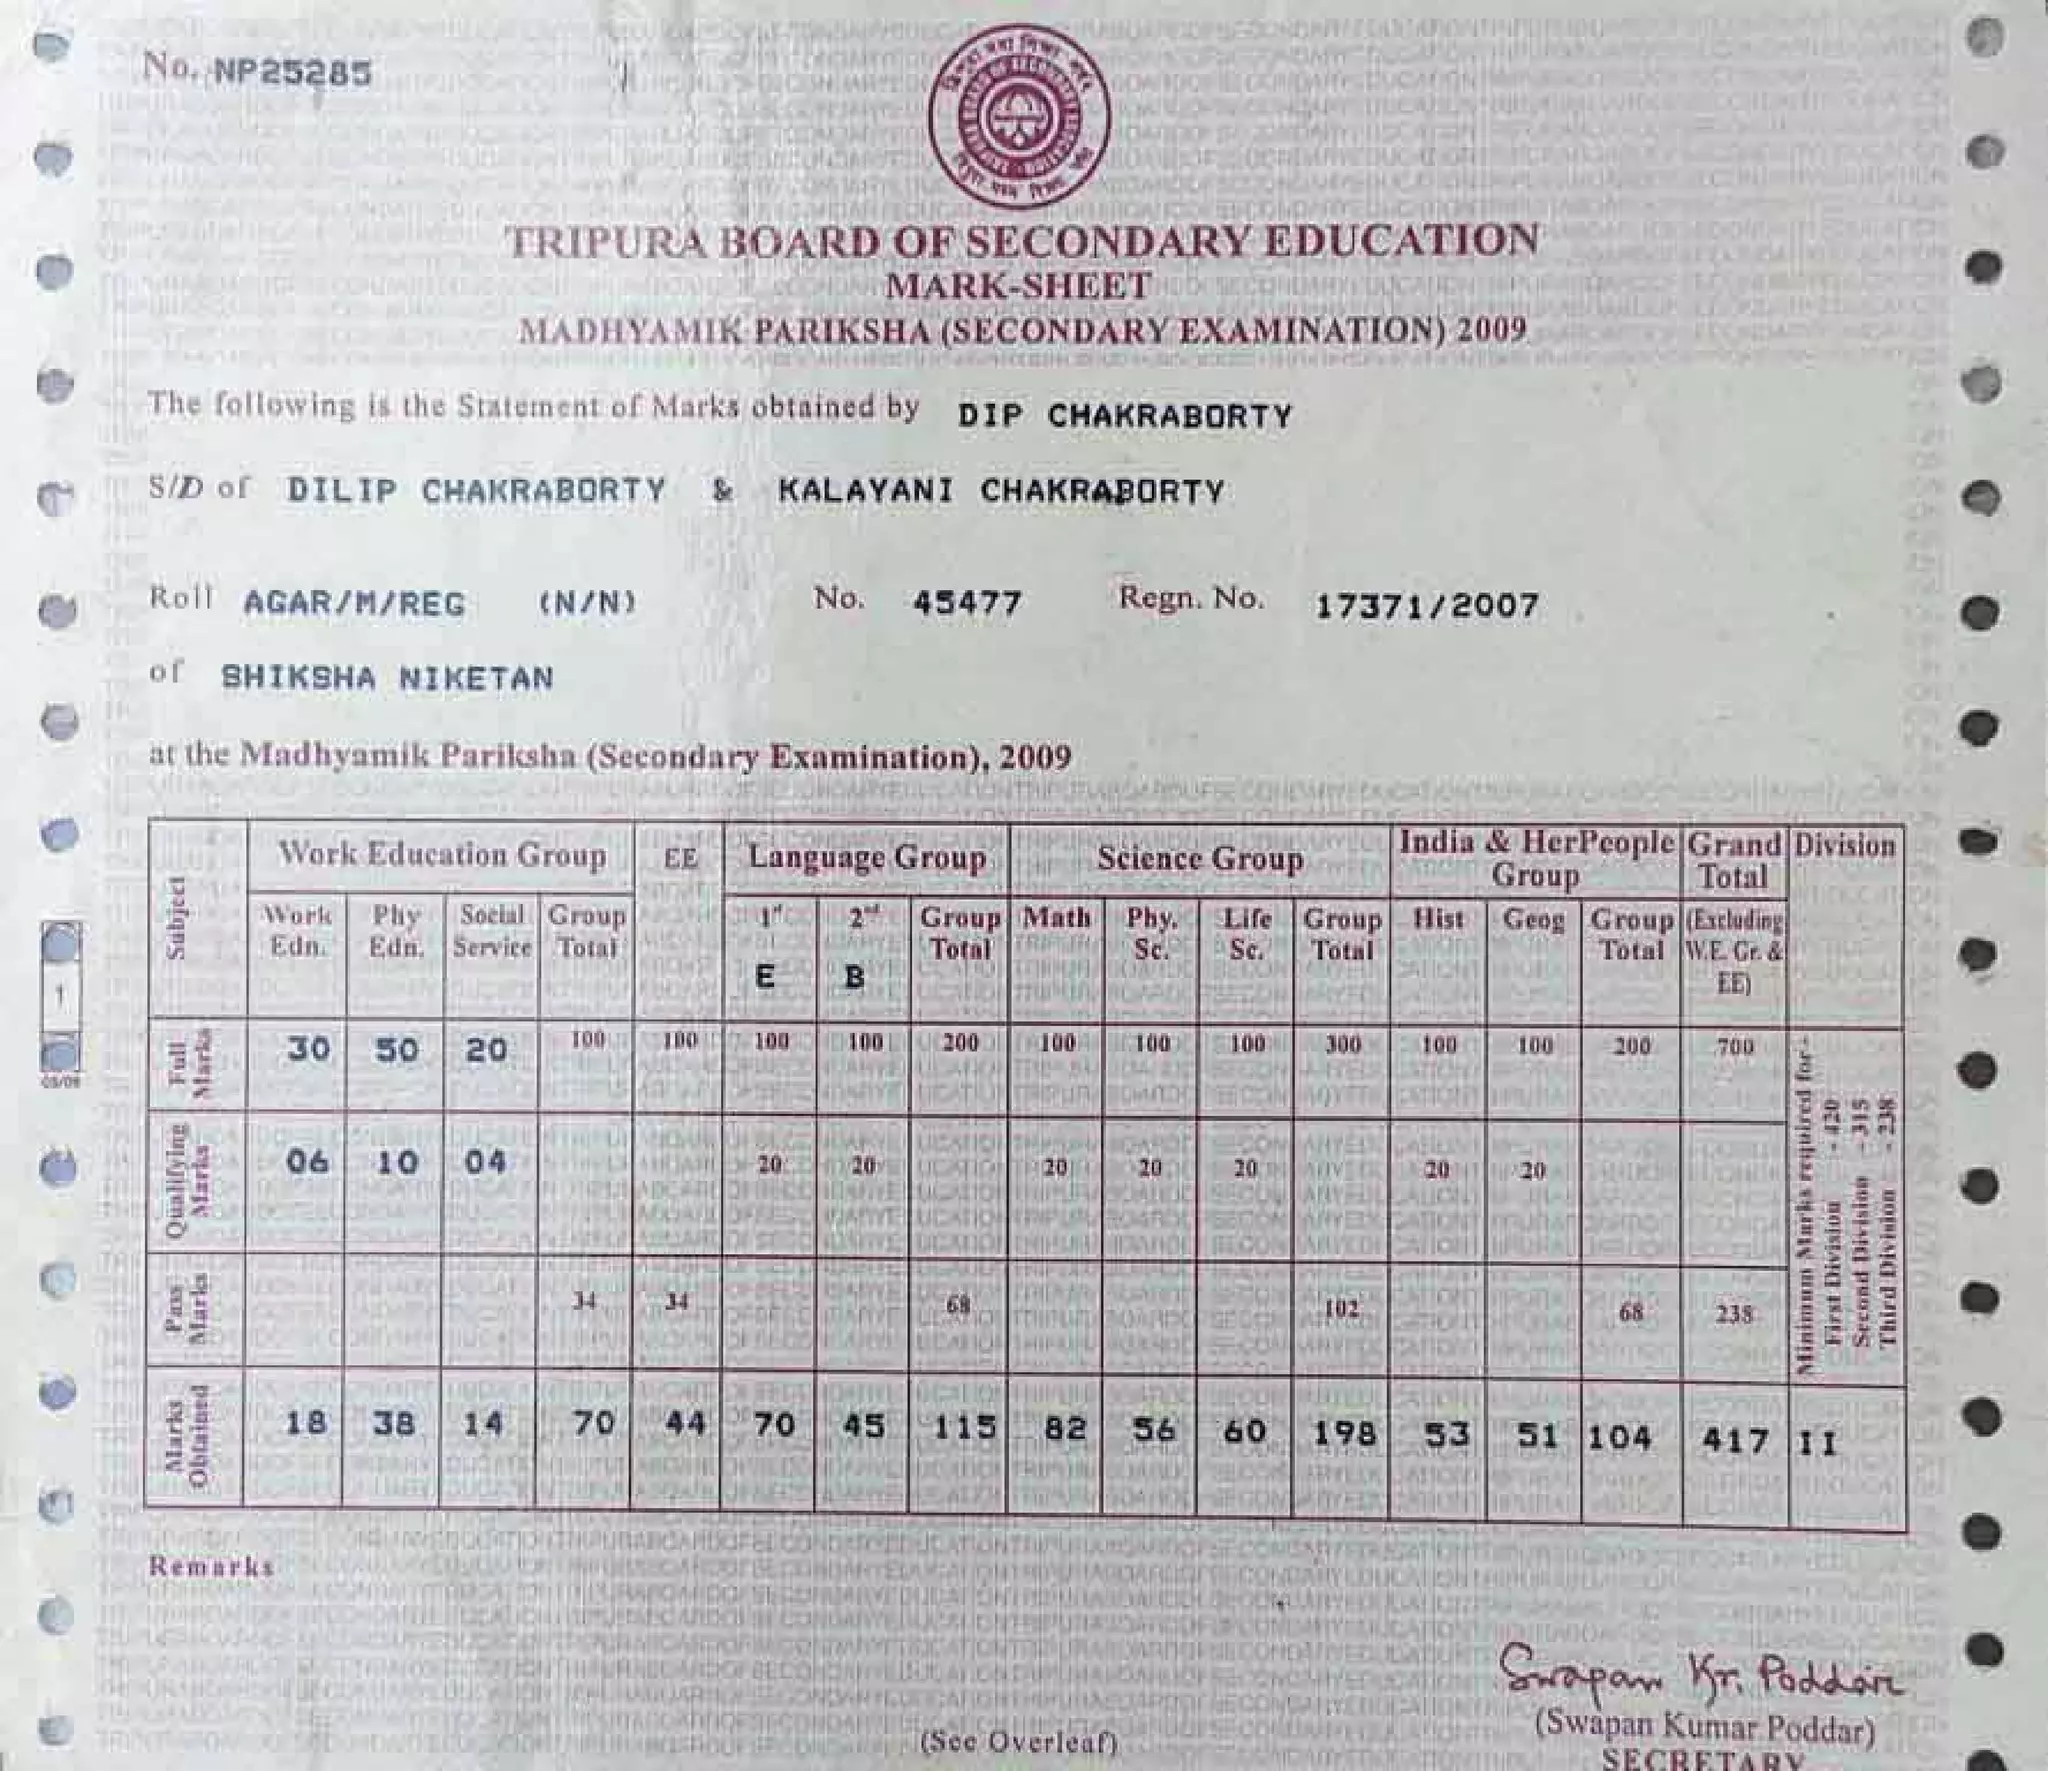 No. NP25285
TRIPURA BOARD OF SECONDARY EDUCATION
MARK-SHEET
MADHYAMIK PARIKSHA (SECONDARY EXAMINATION) 2009
The following is the Statement of Marks obtained by DIP CHAKRABORTY
S/D of DILIP CHAKRABORTY & KALAYANI CHAKRABORTY
Roll AGAR/M/REG (N/N) No. 45477 Regn. No. 17371/2007
of SHIKSHA NIKETAN
at the Madhyamik Pariksha (Secondary Examination), 2009
Subject Work Education Group EE Language Group Science Group India & HerPeople Group Grand Total Division
Work Edn. Phy Edn. Social Service Group Total 1st E 2nd B Group Total Math Phy. Sc. Life Sc. Group Total Hist Geog Group Total (Excluding W.E. Gr. & EE)
Full Marks 30 50 20 100 100 100 100 200 100 100 100 300 100 100 200 700
Qualifying Marks 06 10 04 20 20 20 20 20 20 20
Pass Marks 34 34 68 102 68 238
Minimum Marks required for -
First Division - 420
Second Division - 315
Third Division - 238
Marks Obtained 18 38 14 70 44 70 45 115 82 56 60 198 53 51 104 417 II
1
03/09
Remarks
Swapan Kr. Poddar
(See Overleaf)
(Swapan Kumar Poddar)
SECRETARY